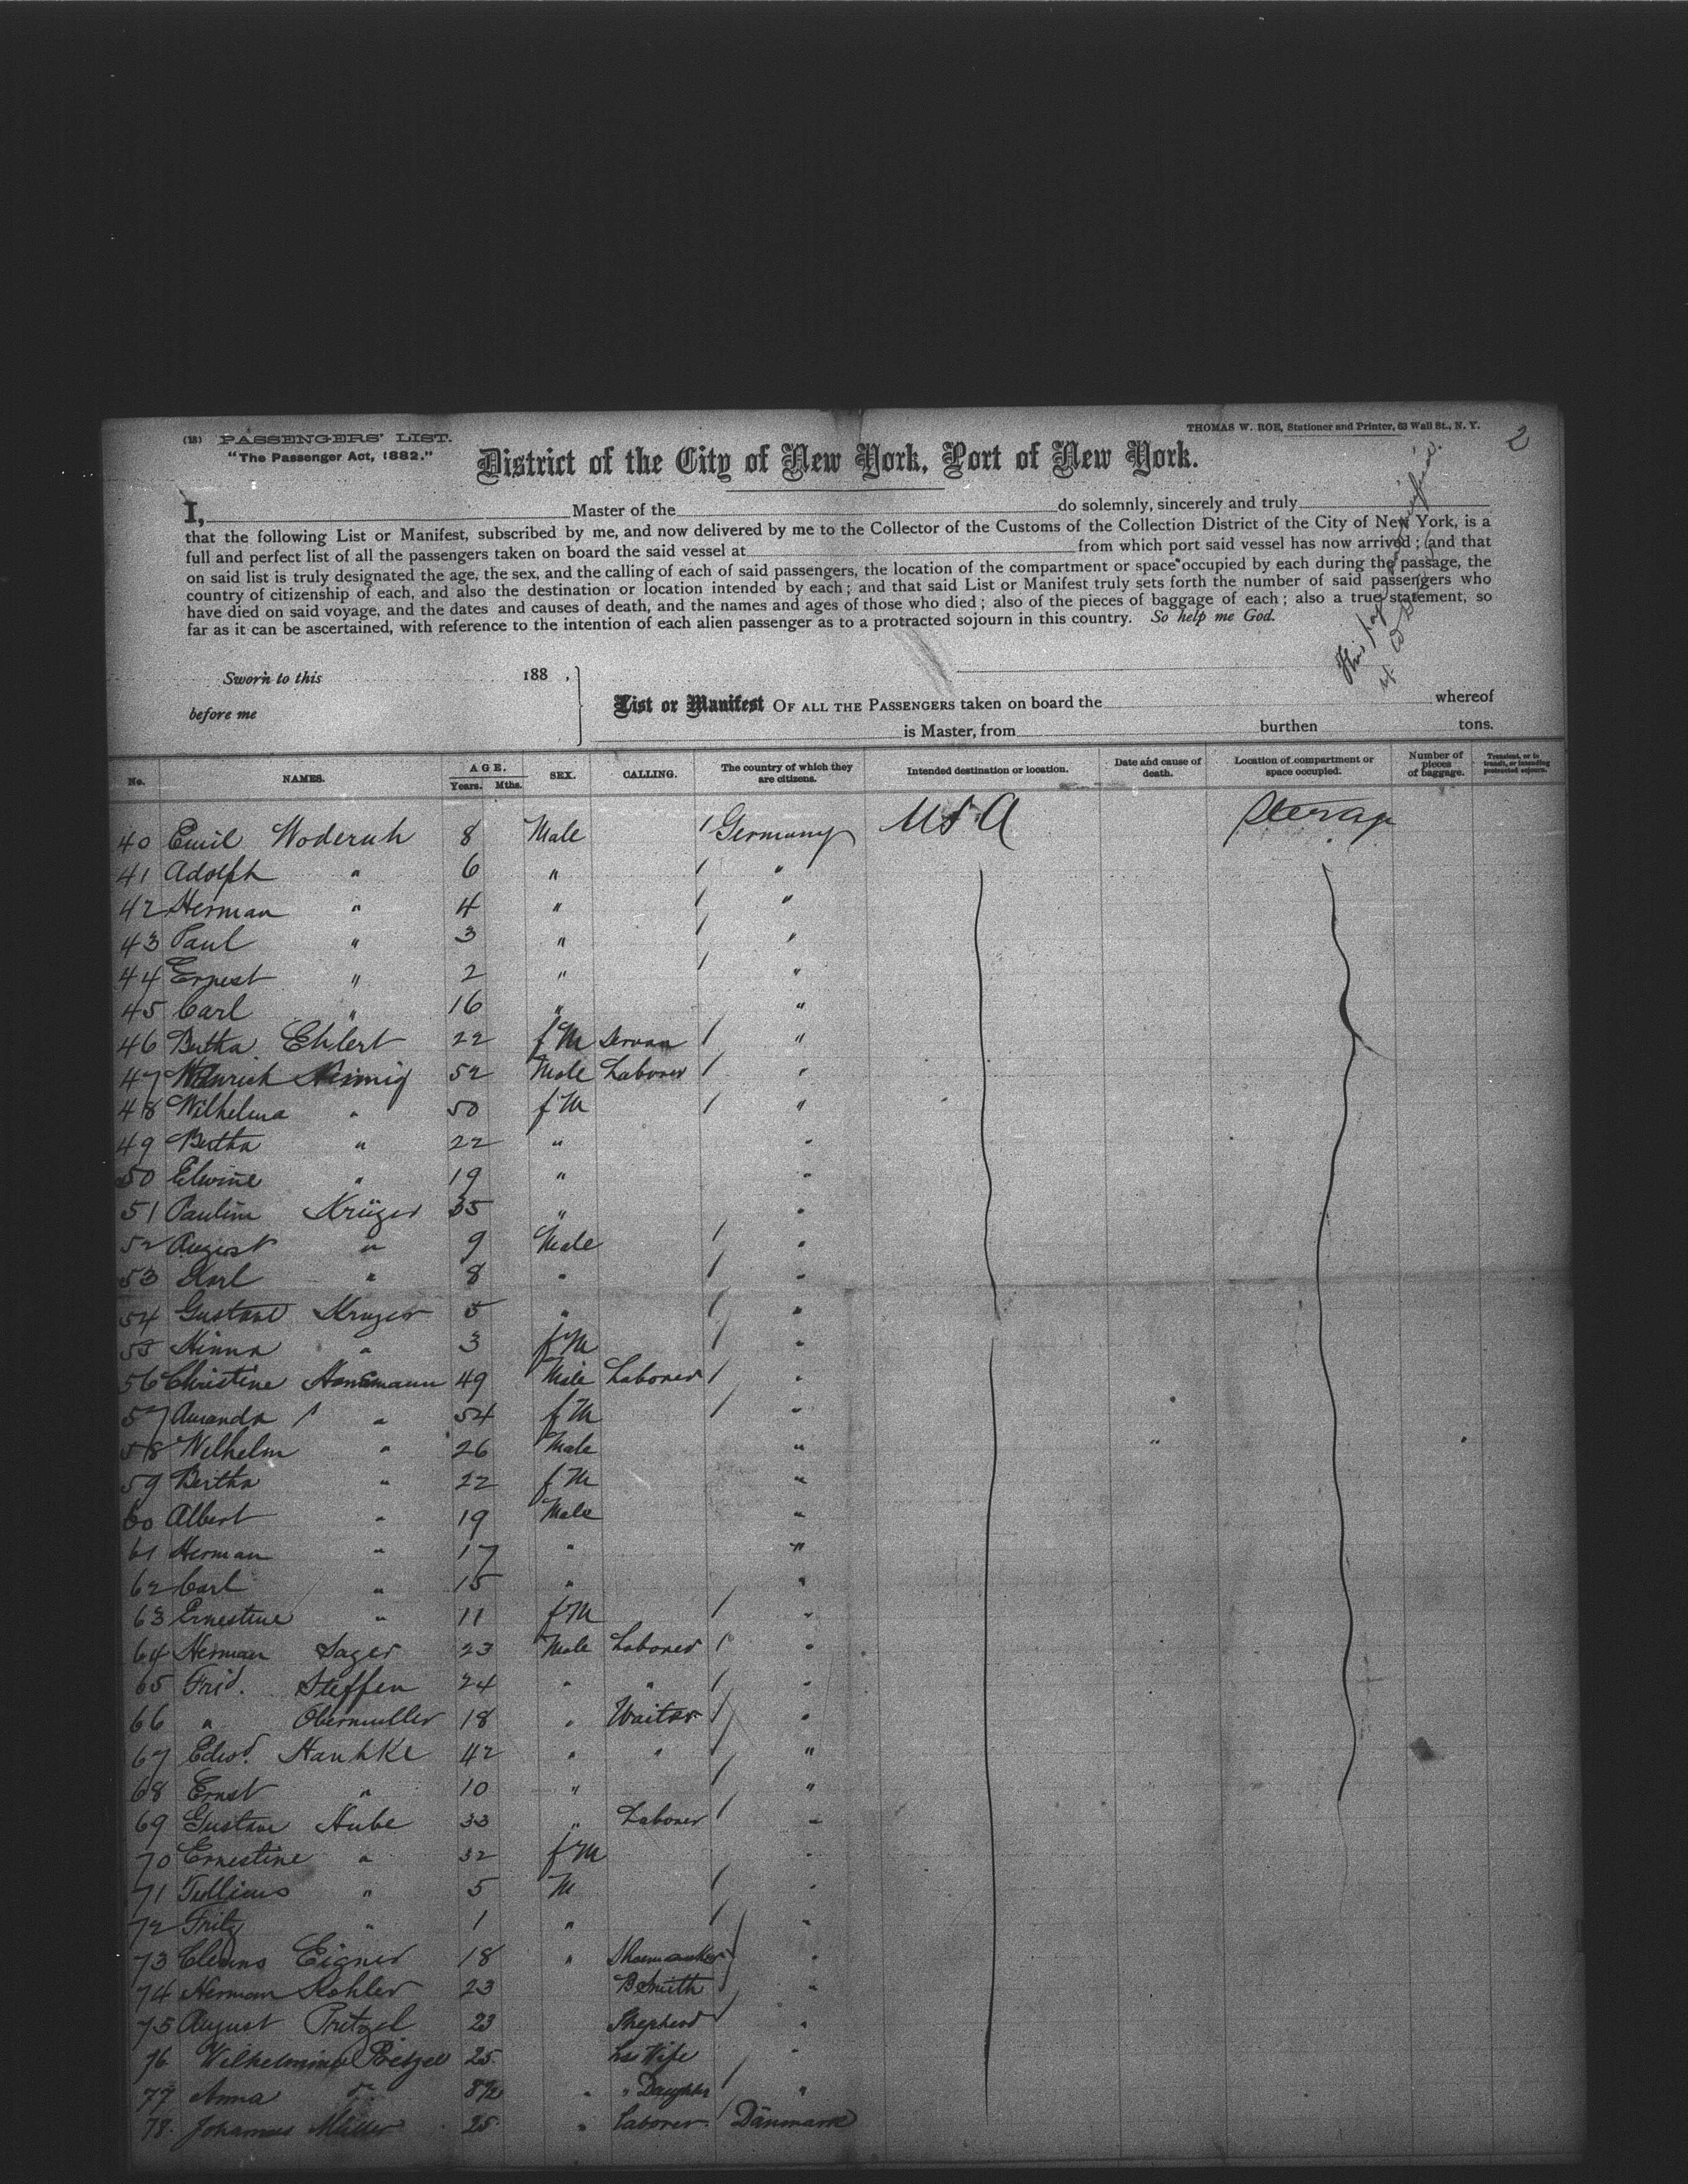 (18) PASSENGERS' LIST.
THOMAS W. ROE, Stationer and Printer, 63 Wall St., N. Y.
2
"The Passenger Act, 1882."
District of the City of New York, Port of New York.
I, Master of the do solemnly, sincerely and truly
that the following List or Manifest, subscribed by me, and now delivered by me to the Collector of the Customs of the Collection District of the City of New York, is a
full and perfect list of all the passengers taken on board the said vessel at from which port said vessel has now arrived; and that
on said list is truly designated the age, the sex, and the calling of each of said passengers, the location of the compartment or space occupied by each during the passage, the
country of citizenship of each, and also the destination or location intended by each; and that said List or Manifest truly sets forth the number of said passengers who
have died on said voyage, and the dates and causes of death, and the names and ages of those who died; also of the pieces of baggage of each; also a true statement, so
far as it can be ascertained, with reference to the intention of each alien passenger as to a protracted sojourn in this country. So help me God.
This page
Sworn to this 188 ,
before me
List or Manifest OF ALL THE PASSENGERS taken on board the whereof
is Master, from burthen tons.
No. NAMES. AGE. Years. Mths. SEX. CALLING. The country of which they are citizens. Intended destination or location. Date and cause of death. Location of compartment or space occupied. Number of pieces of baggage. Transient, or in transit, or intending protracted sojourn.
40 Emil Woderuh 8 Male / Germany USA Steerag
41 Adolph " 6 " / "
42 Herman " 4 " / "
43 Paul " 3 " / "
44 Ernest " 2 " / "
45 Carl " 16 " "
46 Bertha Ehlert 22 fM Servan / "
47 Heinrich 52 Male Laborer / "
48 Wilhelma " 50 fM / "
49 Bertha " 22 " "
50 Elwine " 19 " "
51 Paulina Krüger 35 " "
52 August " 9 Male / "
53 Karl " 8 " / "
54 Gustave Kruger 5 " / "
55 Minna " 3 fM / "
56 Christine Hansmann 49 Male Laborer / "
57 Amanda " 54 fM / "
58 Wilhelm " 26 Male "
59 Bertha " 22 fM "
60 Albert " 19 Male "
61 Herman " 17 " "
62 Carl " 15 " "
63 Ernestine " 11 fM / "
64 Herman Sager 23 Male Laborer / "
65 Frid. Steffen 24 " " / "
66 " Obermuller 18 " Waiter / "
67 Edwd. Hanhke 42 " " / "
68 Ernst " 10 " / "
69 Gustave Hube 33 " Laborer / "
70 Ernestine " 32 fM "
71 Tullius " 5 M / "
72 Fritz " 1 " / "
73 Clemns Eigner 18 " Shoemaker "
74 Herman Kohler 23 BSmith "
75 August Pritzel 23 Shepherd / "
76 Wilhelmina Pritzel 25 his Wife "
77 Anna do 8/12 " " Daughter / "
78. Johannes Müller 25 " Laborer. / Dänmark